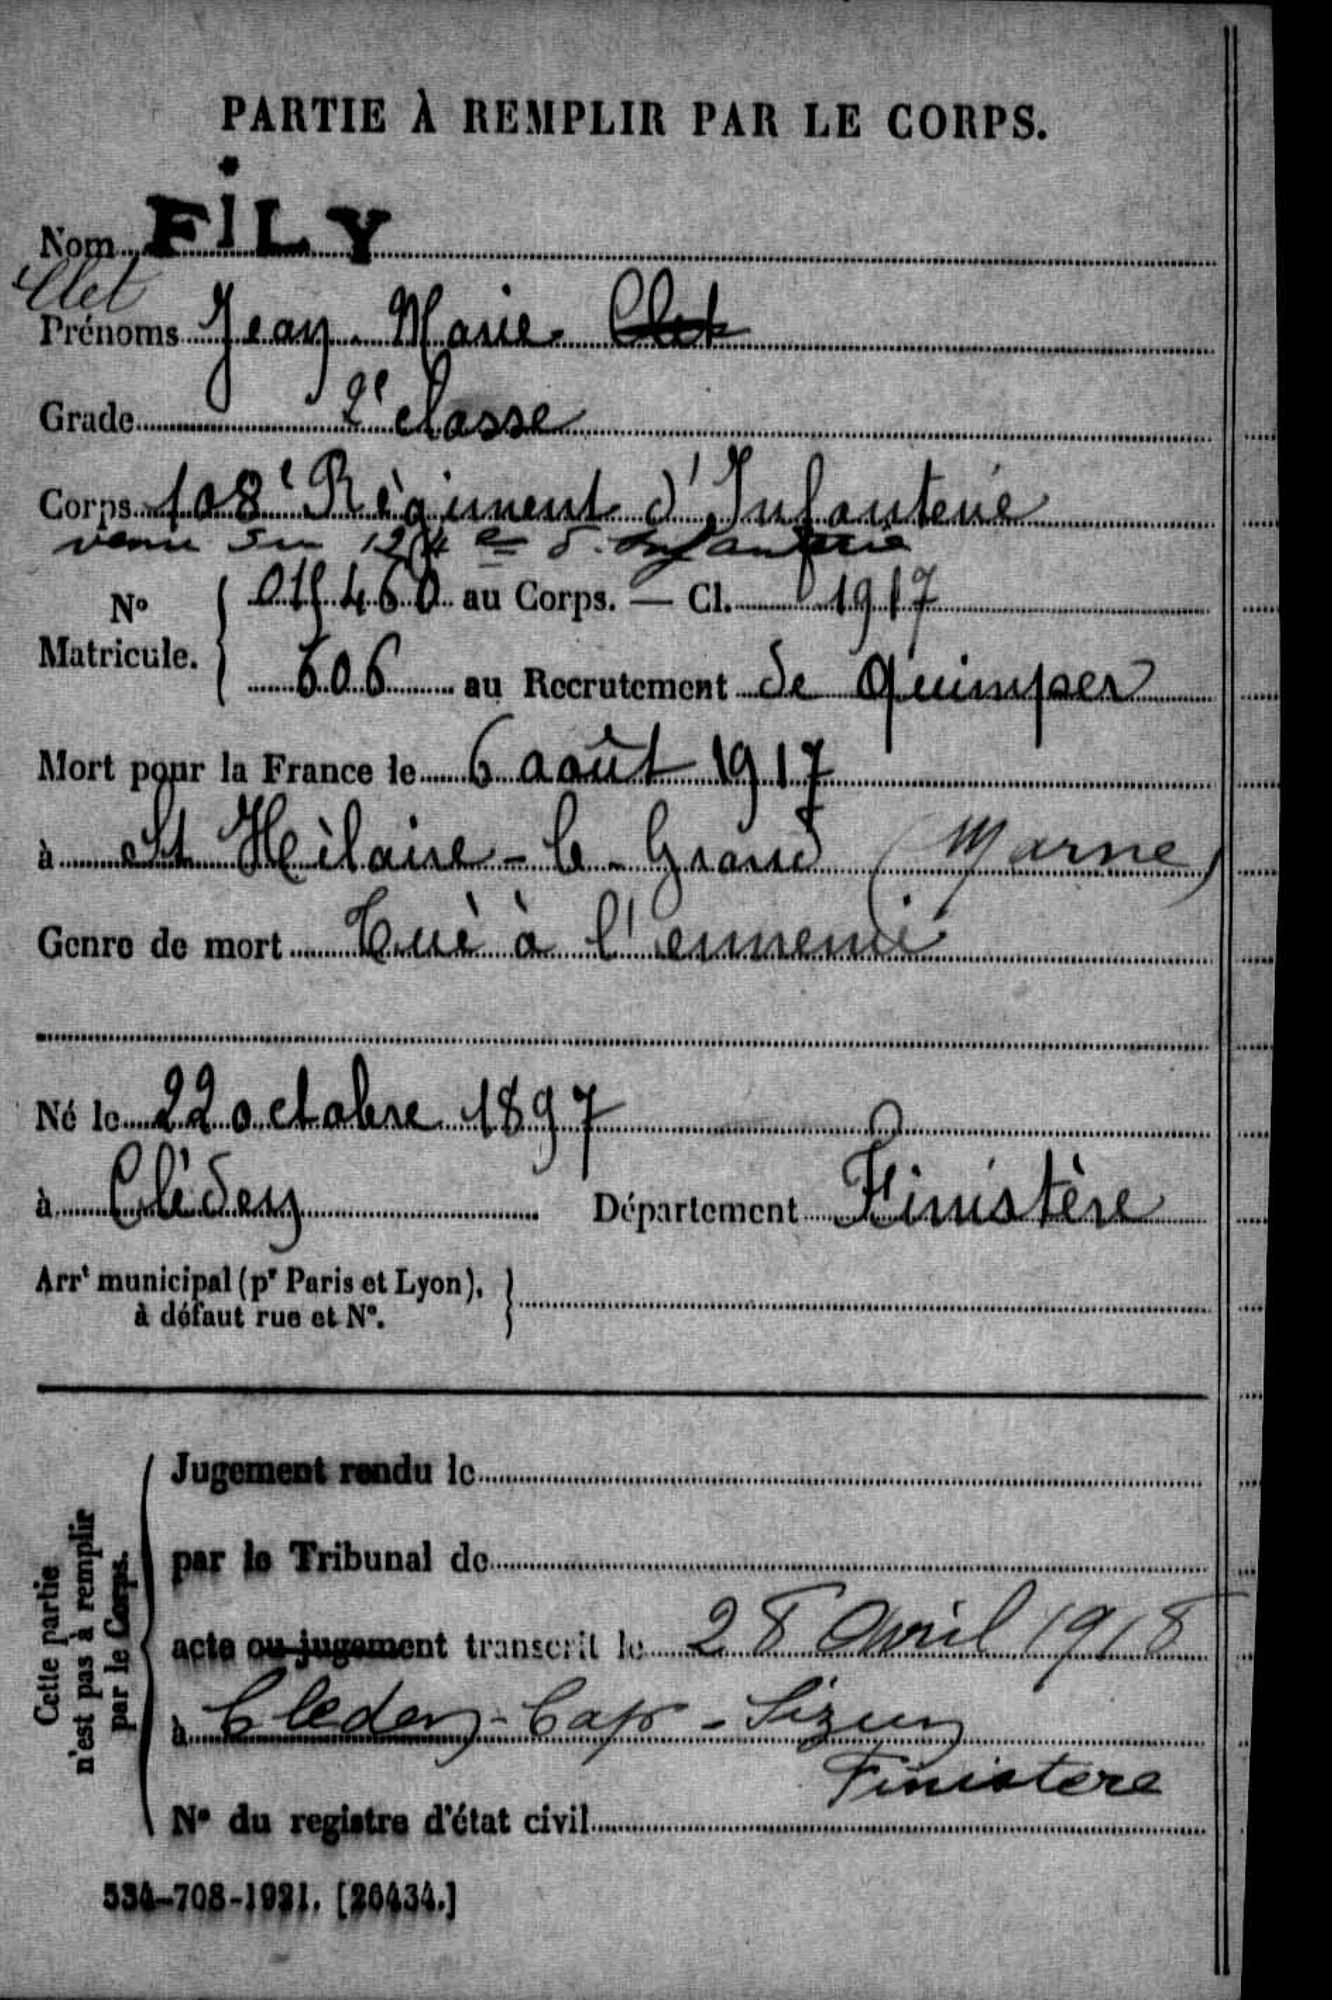 PARTIE À REMPLIR PAR LE CORPS.
Nom FiLY
Clet
Prénoms Jean Marie Clet
Grade 2e classe
Corps 108e Règiment d'Infanterie
venu du 124e d'Infanterie
No Matricule. 460 au Corps. — Cl. 1917
606 au Recrutement de Quimper
Mort pour la France le 6 août 1917
à St Hilaire-le-Grand (Marne)
Genre de mort Tué à l'ennemi
Né le 22 octobre 1897
à Clédey Département Finistère
Arrt municipal (pr Paris et Lyon),
à défaut rue et No.
Cette partie
n'est pas à remplir
par le Corps.
Jugement rendu le
par le Tribunal de
acte ou jugement transcrit le 28 Avril 1918
à Cleden-Cap-Sizun
Finistere
No du registre d'état civil
534-708-1921. [26434.]